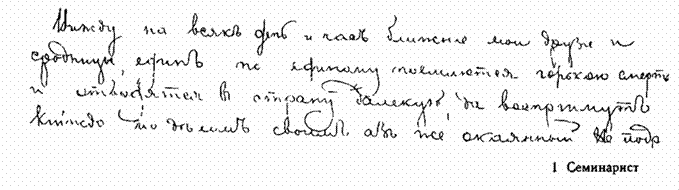 Нижду на всякъ день и часъ ближние мои друзи и
сродницы, единъ по единому посылаются горькою смерть
и отводятся в страну далекую да восприимутъ
кииждо по дѣломъ своимъ азъ же окаянный не подр
1 Семинарист